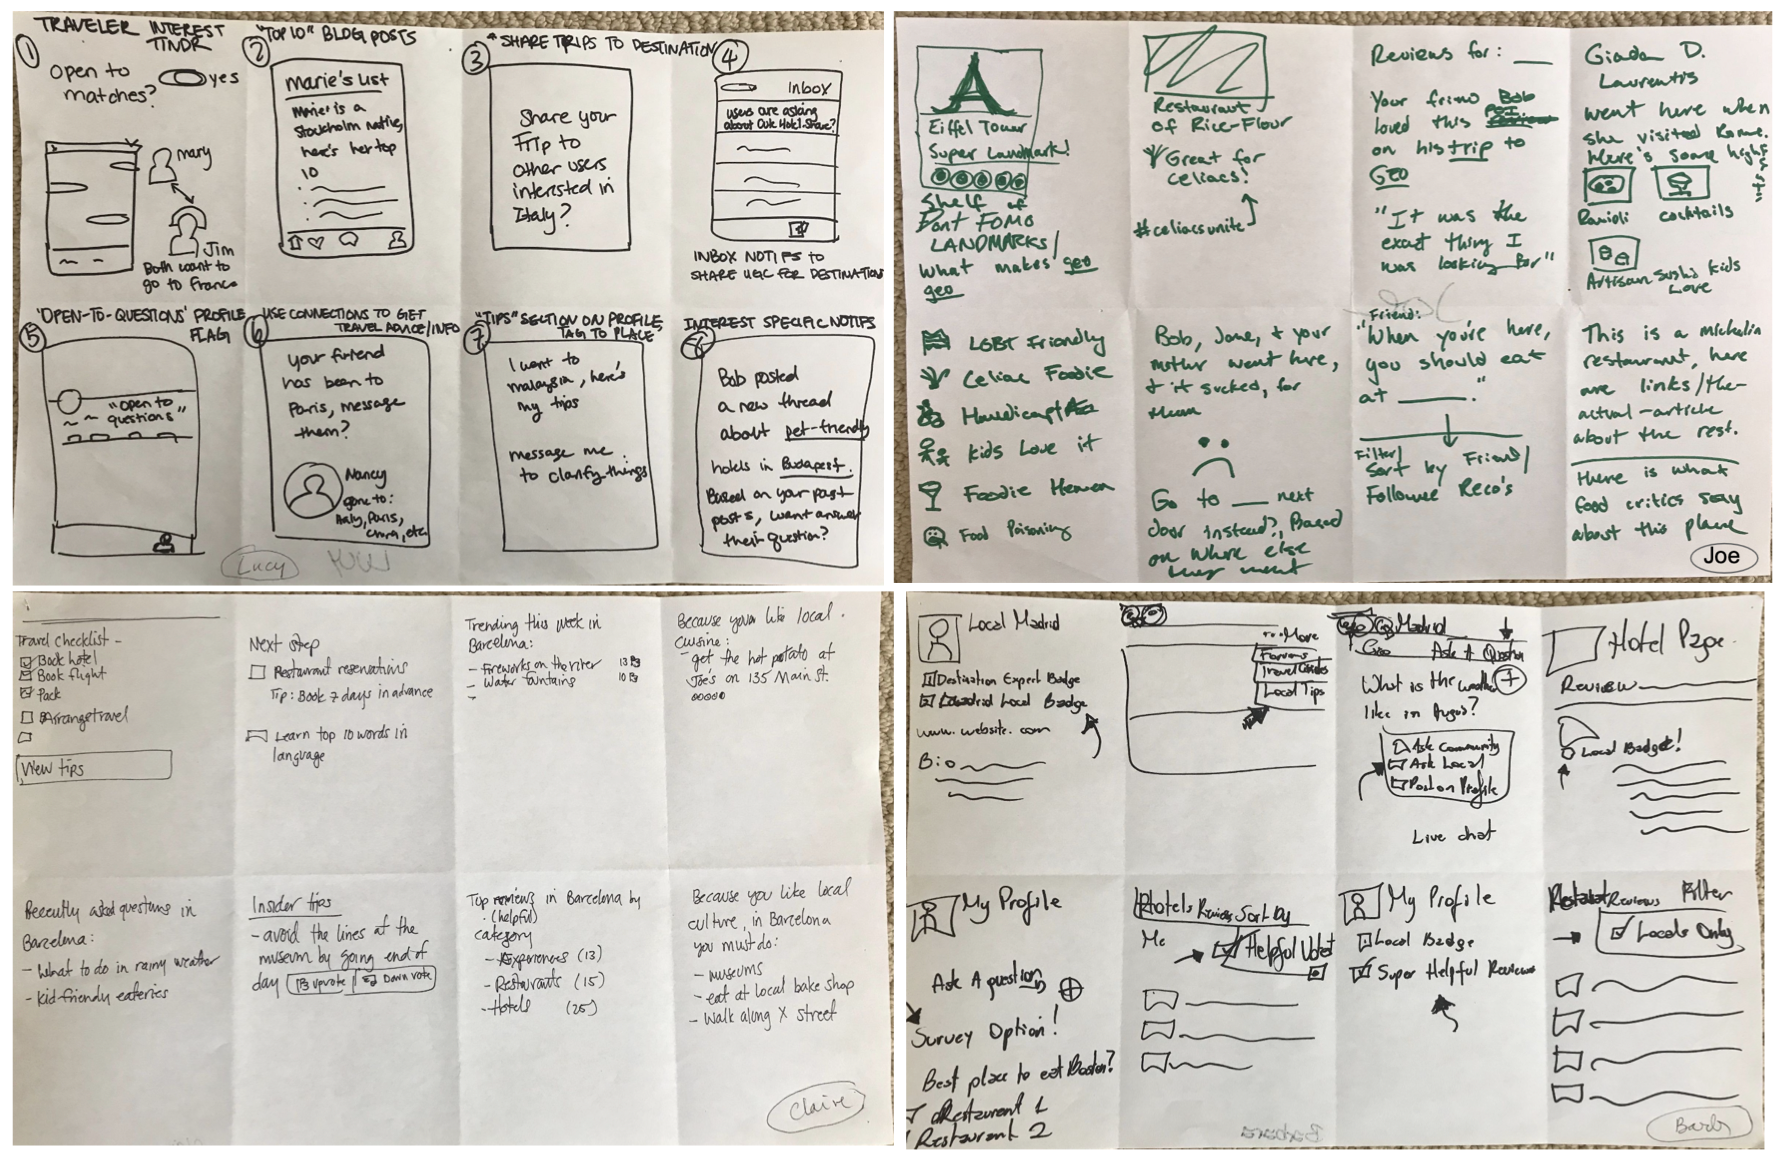 ①
TRAVELER INTEREST
TINDR
Open to
matches?
yes
mary
Jim
Both want to
go to France
②
"TOP 10" BLOG POSTS
Marie's List
Marie is a
Stockholm native,
here's her top
10
③
* SHARE TRIPS TO DESTINATION
Share your
Trip to
other users
interested in
Italy?
④
Inbox
users are asking
about Oulk Hotel. Share?
INBOX NOTIFS TO
SHARE UGC FOR DESTINATION
⑤
'OPEN-TO-QUESTIONS' PROFILE
FLAG
"Open to
questions"
⑥
USE CONNECTIONS TO GET
TRAVEL ADVICE/INFO
your friend
has been to
Paris, message
them?
Nancy
gone to:
Italy, Paris,
China, etc.
⑦
"TIPS" SECTION ON PROFILE,
TAG TO PLACE
I want to
malaysia, here's
my tips
message me
to clarify things
⑧
INTEREST SPECIFIC NOTIFS
Bob posted
a new thread
about pet-friendly
hotels in Budapest.
Based on your past
posts, want answer
their question?
Lucy
Eiffel Tower
Super Landmark!
Shelf of
Dont FOMO
LANDMARKS/
what makes geo
geo
Restaurant
of Rice-Flour
Great for
celiacs!
#celiacsunite
Reviews for: ___
Your friend Bob
loved this POI
on his trip to
Geo
"It was the
exact thing I
was looking for"
Giada D.
Laurentis
went here when
she visited Rome.
Here's some highlights
Ravioli
cocktails
Artisan Sushi
kids
Love
LGBT Friendly
Celiac Foodie
Handicapt
Kids Love it
Foodie Heaven
Food Poisoning
Bob, Jane, & your
mother went here,
& it sucked, for
them
Go to ___ next
door instead?, Based
on where else
they went
Friend:
"When you're here,
you should eat
at ______."
Filter/
Sort by Friend/
Followee Reco's
This is a michelin
restaurant, here
are links/the
actual-article
about the rest.
Here is what
food critics say
about this place
Joe
Travel checklist -
Book hotel
Book flight
Pack
Arrange travel
View tips
Next step
Restaurant reservations
Tip: Book 7 days in advance
Learn top 10 words in
language
Trending this week in
Barcelona:
- Fireworks on the river 13
- Water fountains 10
-
Because you like local
cuisine:
- get the hot potato at
Joe's on 135 Main St.
Recently asked questions in
Barcelona:
- What to do in rainy weather
- Kid-friendly eateries
Insider tips
- avoid the lines at the
museum by going end of
day
upvote
Down vote
Top reviews in Barcelona by
(helpful)
category
- Experiences (13)
- Restaurants (15)
- Hotels (25)
Because you like local
culture, in Barcelona
you must do:
- museums
- eat at local bake shop
- Walk along X street
Claire
Local Madrid
Destination Expert Badge
Madrid Local Badge
www.website.com
Bio
...More
Forums
Travel Guides
Local Tips
Madrid
Geo
Ask A Question
What is the weather
like in August?
Ask Community
Ask Local
Post on Profile
Live chat
Hotel Page
Review
Local Badge!
My Profile
Ask A question
Survey Option!
Best place to eat Boston?
Restaurant 1
Restaurant 2
Hotels Reviews Sort By
Me
Helpful Votes
My Profile
Local Badge
Super Helpful Reviewer
Reviews Filter
Locals Only
Barbara
Barb